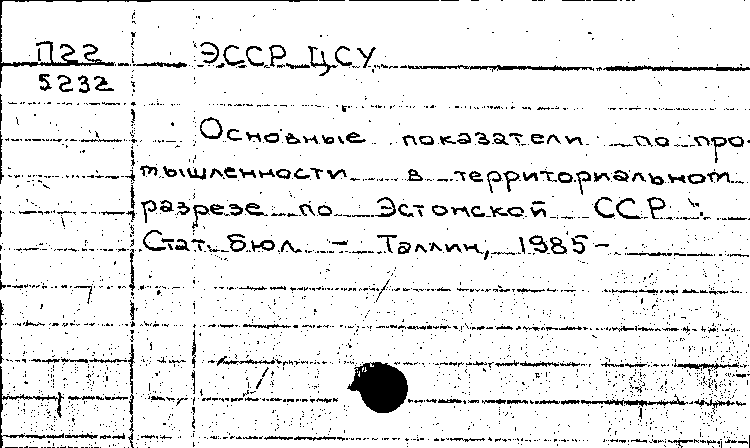 П22 ЭССР ЦСУ
5232
Основные показатели по про-
мышленности в территориальном
разрезе по Эстонской ССР :
Стат. бюл. – Таллин, 1985 –